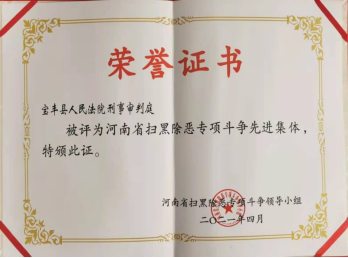 荣誉证书
宝丰县人民法院刑事审判庭
被评为河南省扫黑除恶专项斗争先进集体，
特颁此证。
河南省扫黑除恶专项斗争领导小组
二〇二一年四月